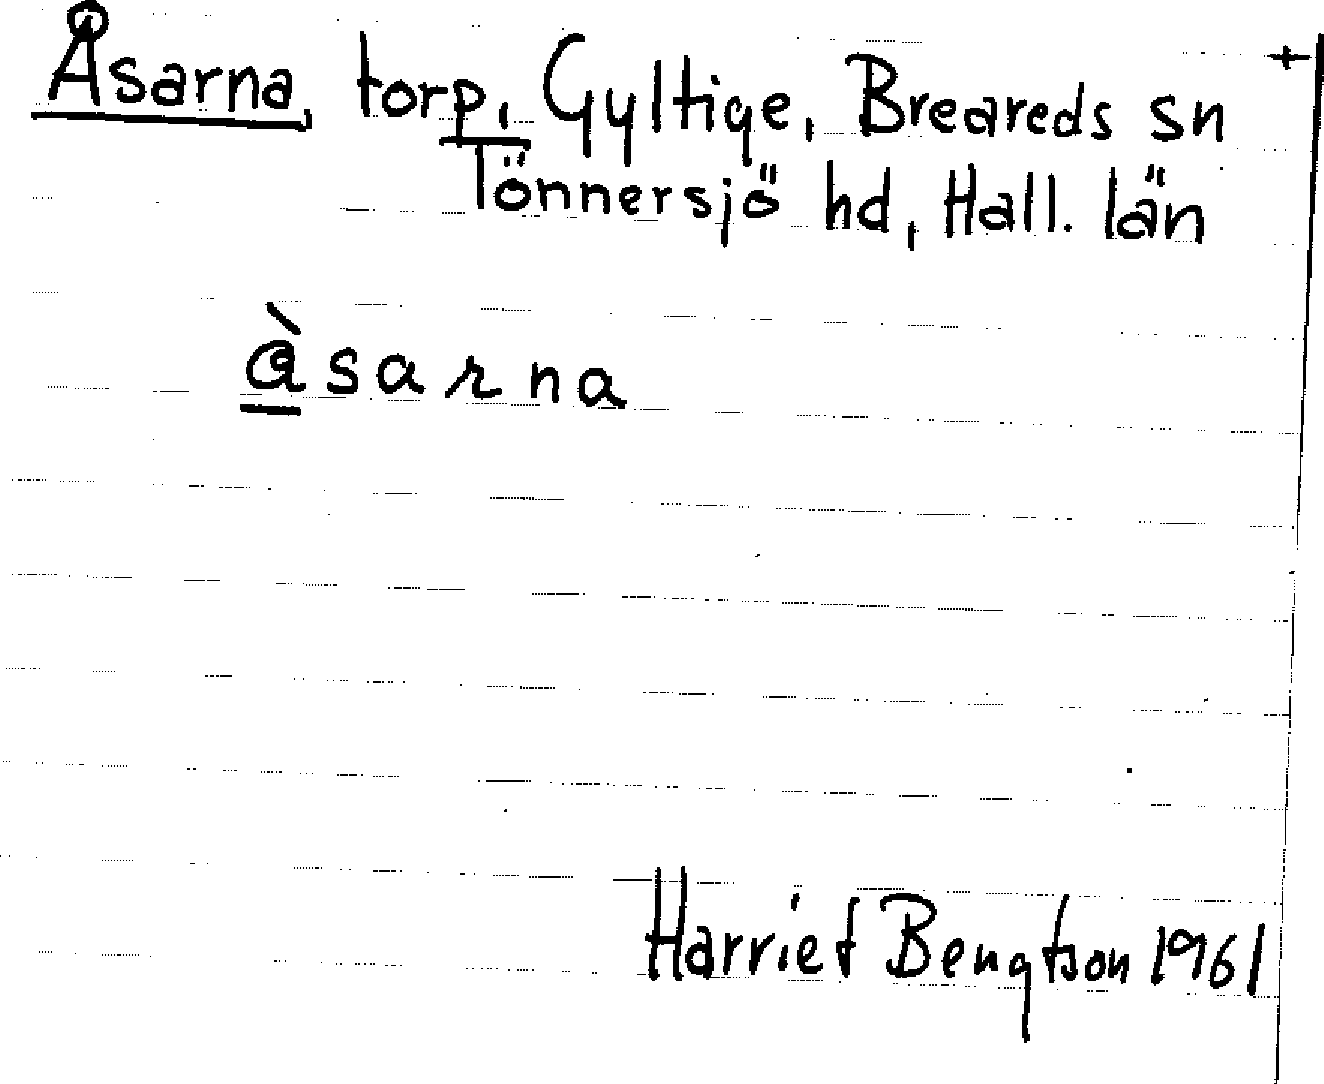 Åsarna, torp, Gyltige, Breareds sn +
Tönnersjö hd, Hall. län
åsarna
Harriet Bengtson 1961